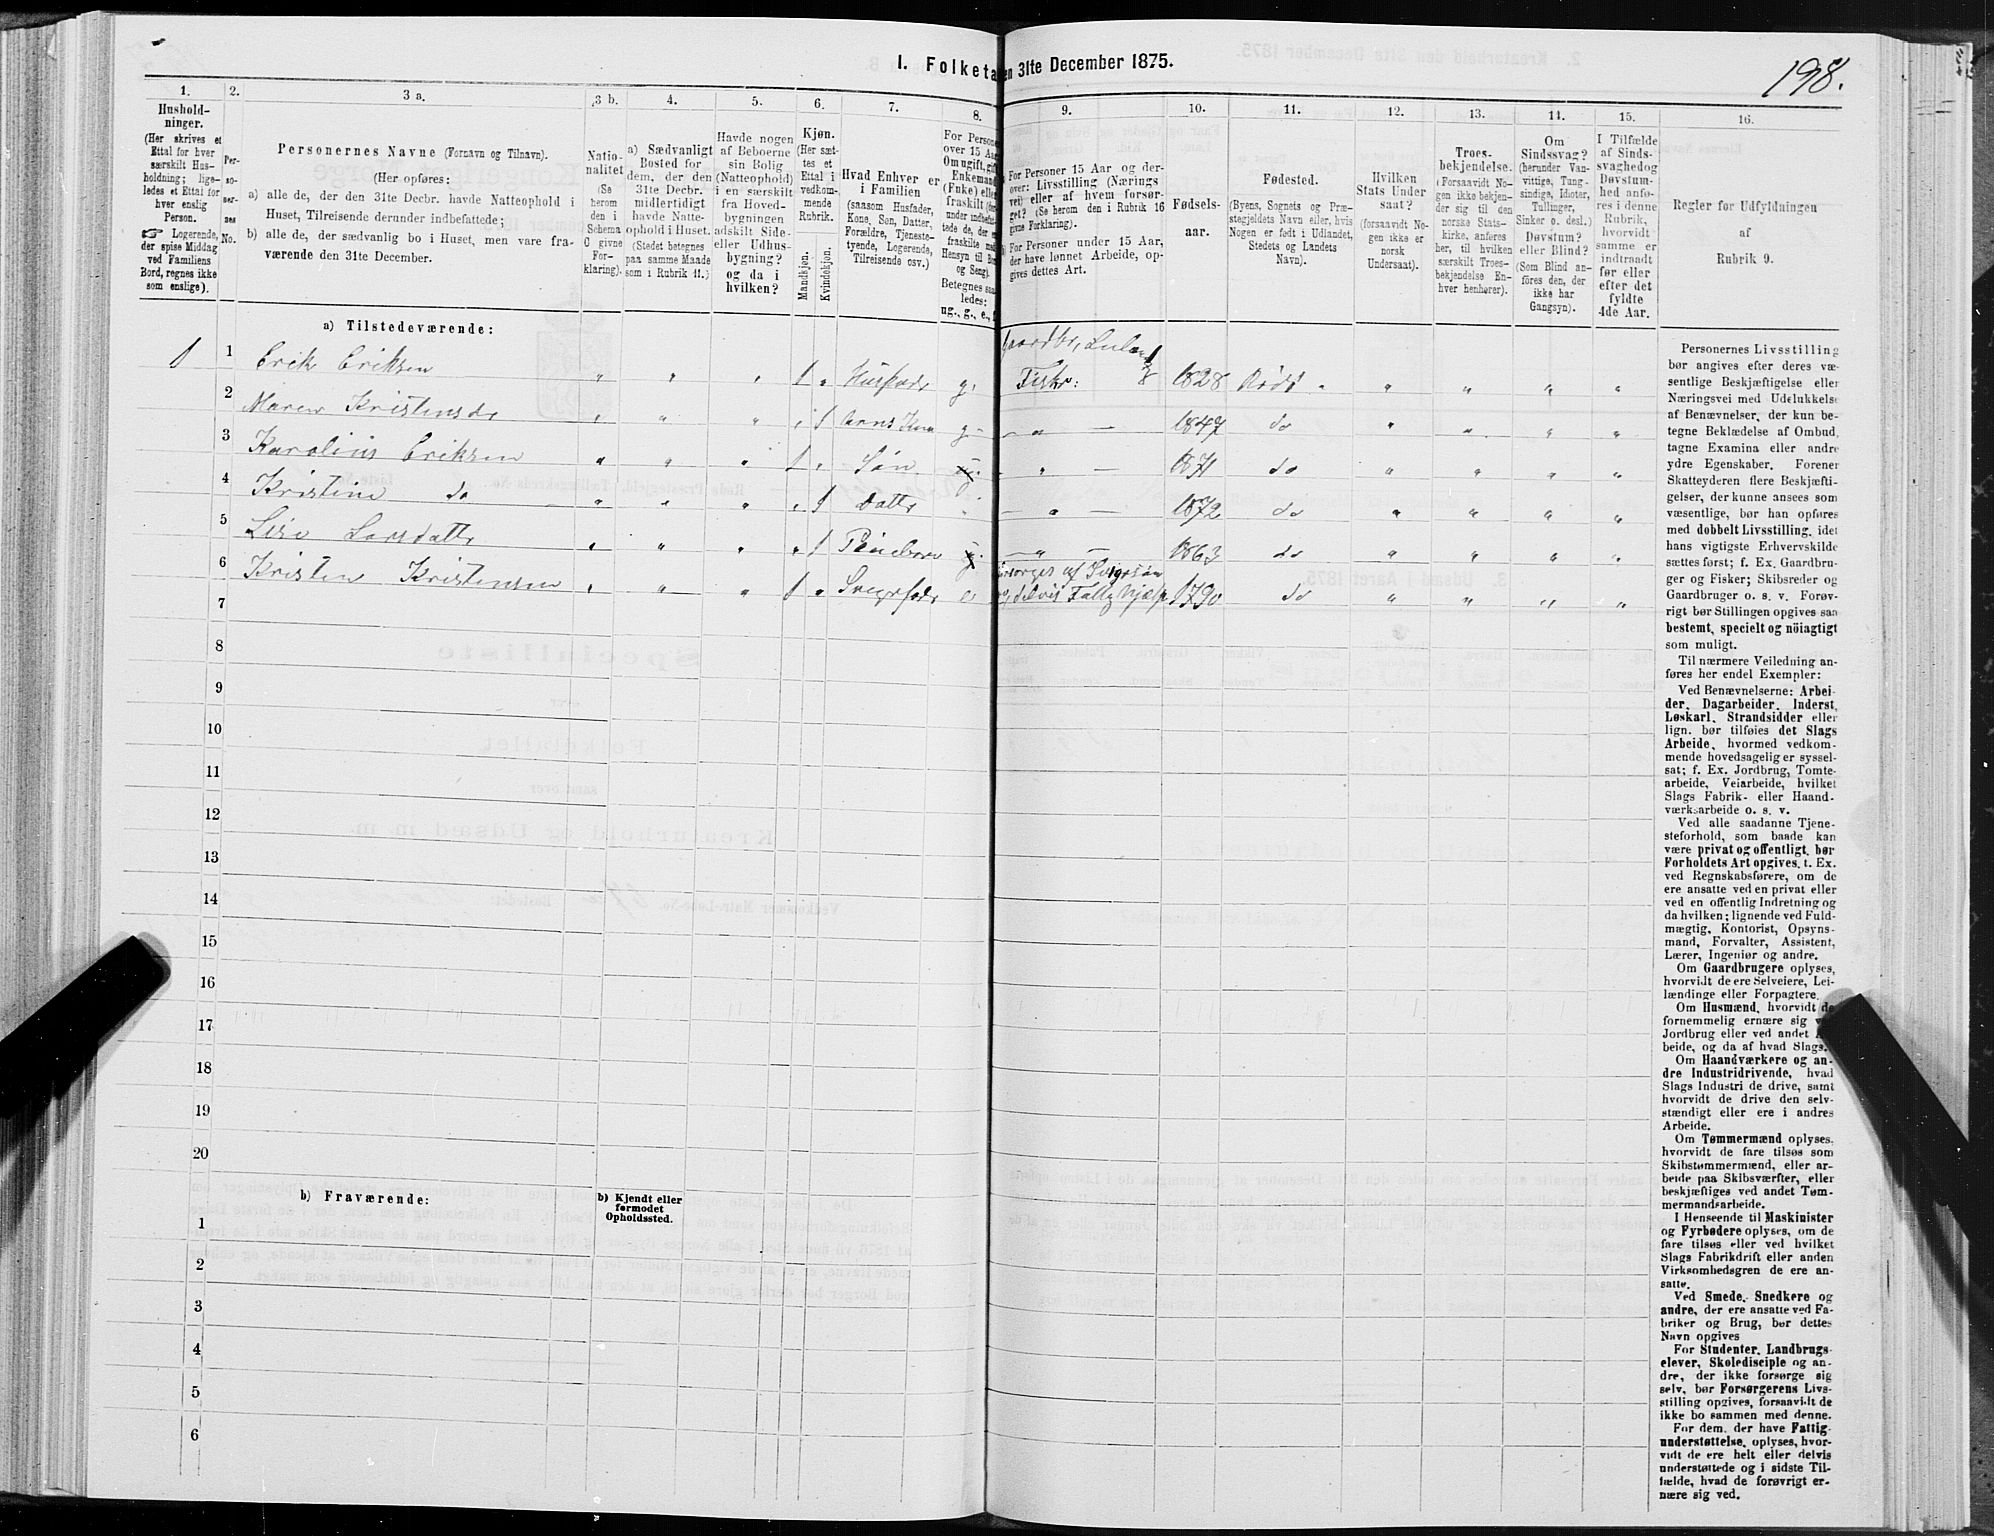 198.
I. Folketa
en 31te December 1875.
1.
2.
3 a.
3 b.
4.
5.
6.
7.
8.
9.
10.
11.
12.
13.
14.
15.
16.
Hushold-
ninger.
(Her skrives et
Ettal for hver
særskilt Hus-
holdning; lige-
ledes et Ettal for
hver enslig
Person.
☞ Logerende,
der spise Middag
ved Familiens
Bord, regnes ikke
som enslige).
Per-
so-
ner-
nes
No.
Personernes Navne (Fornavn og Tilnavn).
(Her opføres:
a) alle de, der den 31te Decbr. havde Natteophold i
Huset, Tilreisende derunder indbefattede;
b) alle de, der sædvanlig bo i Huset, men vare fra-
værende den 31te December.
Natio-
nalitet
(Se
herom
den i
Schema
C givne
For-
klaring).
a) Sædvanligt
Bosted for
dem, der den
31te Decbr.
midlertidigt
havde Natte-
ophold i Huset.
(Stedet betegnes
paa samme Maade
som i Rubrik 11.)
Havde nogen
af Beboerne
sin Bolig
(Natteophold)
i en særskilt
fra Hoved-
bygningen
adskilt Side-
eller Udhus-
bygning?
og da i
hvilken?
Kjøn.
(Her sæt-
tes et
Ettal i
vedkom-
mende
Rubrik.
Mandkjøn.
Kvindekjøn.
Hvad Enhver er
i Familien
(saasom Husfader,
Kone, Søn, Datter,
Forældre, Tjeneste-
tyende, Logerende,
Tilreisende osv.)
For Persone
over 15 Aa
Om ugift, gift
Enkemand
(Enke) elle
fraskilt
under indbefat-
tede de, der
fraskilte me
Hensyn til Bo
og Seng).
Betegnes saa
ledes:
ug., g., e.,
For Personer 15 Aar og der-
over: Livsstilling (Nærings
vei) eller af hvem forsør-
get? (Se herom den i Rubrik 16
givne Forklaring).
For Personer under 15 Aar,
der have lønnet Arbeide, op-
gives dettes Art.
Fødsels-
aar.
Fødested.
(Byens, Sognets og Præ-
stegjeldets Navn eller, hvis
Nogen er født i Udlandet,
Stedets og Landets
Navn).
Hvilken
Stats Under
saat?
(forsaavidt No-
gen ikke er
norsk
Undersaat).
Troes-
bekjendelse.
(Forsaavidt No-
gen ikke beken-
der sig til den
norske Stats-
kirke, anføres
her, til hvilken
særskilt Troes-
bekjendelse En-
hver henhører).
Om
Sindssvag?
(herunder Van-
vittige, Tung-
sindige, Idioter,
Tullinger,
Sinker o. desl.)
Døvstum?
eller Blind?
(Som Blind an-
føres den, der
ikke har
Gangsyn).
I Tilfælde
af Sinds-
svaghed og
Døvstum-
hed anfø-
res i denne
Rubrik,
hvorvidt
samme er
indtraadt
før eller
efter det
fyldte
4de Aar.
Regler for Udfyldningen
af
Rubrik 9.
a) Tilstedeværende:
1 1 Erik Eriksen „ „ „ 1 „ Husfadr g. Fiskr: 1828 Rødø „ „ „ „ „
2 Maren Kristensdr „ „ „ „ 1 hans Kone g. „ 1847 do „ „ „ „
3 Karolius Eriksen „ „ „ 1 „ Søn „ 1871 do „ „ „ „
4 Kristine do „ „ „ „ 1 Dattr „ 1872 do „ „ „ „
5 Lise Larsdattr „ „ „ „ 1 „ 1863 do „ „ „ „
6 Kristen Kristensen „ „ „ 1 „ Svigrfadr e forsørges af Svigrsøn
og delvis Fattighjælp 1790 do „ „ „ „
7
8
9
10
11
12
13
14
15
16
17
18
19
20
b) Fraværende:
b) Kjendt eller
formodet
Opholdssted.
1
2
3
4
5
6
Personernes Livsstilling
bør angives efter deres væ-
sentlige Beskjæftigelse eller
Næringsvei med Udelukkelse
af Benævnelser, der kun be-
tegne Beklædelse af Ombud,
tagne Examina eller andre
ydre Egenskaber. Forener
Skatteyderen flere Beskjæfti-
gelser, der kunne ansees som
væsentlige, bør han opføres
med dobbelt Livsstilling, idet
hans vigtigste Erhvervskilde
sættes først; f. Ex. Gaardbru-
ger og Fisker; Skibsreder og
Gaardbruger o. s. v. Forøv-
rigt bør Stillingen opgives saa
bestemt, specielt og nöiagtigt
som muligt.
Til nærmere Veiledning an-
føres her endel Exempler:
Ved Benævnelserne: Arbei-
der, Dagarbeider, Inderst,
Løskarl, Strandsidder eller
lign. bør tilføies det Slags
Arbeide, hvormed vedkom-
mende hovedsagelig er syssel-
sat; f. Ex. Jordbrug, Tomte-
arbeide, Veiarbeide, hvilket
Slags Fabrik- eller Haand-
værksarbeide o. s. v.
Ved alle saadanne Tjene-
steforhold, som baade kan
være privat og offentligt, bør
Forholdets Art opgives, t. Ex.
ved Regnskabsførere, om de
ere ansatte ved en privat eller
ved en offentlig Indretning og
da hvilken; lignende ved Fuld-
mægtig, Kontorist, Opsyns-
mand, Forvalter, Assistent,
Lærer, Ingeniør og andre.
Om Gaardbrugere oplyses,
hvorvidt de ere Selveiere, Lei-
lændinge eller Forpagtere.
Om Husmænd, hvorvidt de
fornemmelig ernære sig
Jordbrug eller ved andet
beide, og da af hvad Slags.
Om Haandværkere og an-
dre Industridrivende, hvad
Slags Industri de drive, samt
hvorvidt de drive den selv-
stændigt eller ere i andres
Arbeide.
Om Tømmermænd oplyses,
hvorvidt de fare tilsøs som
Skibstømmermænd, eller ar-
beide paa Skibsværfter, eller
beskjæftiges ved andet Tøm-
mermandsarbeide.
I Henseende til Maskinister
og Fyrbødere oplyses, om de
fare tilsøs eller ved hvilket
Slags Fabrikdrift eller anden
Virksomhedsgren de ere an-
satte.
Ved Smede, Snedkere og
andre, der ere ansatte ved Fa-
briker og Brug, bør dettes
Navn opgives
For Studenter, Landbrugs-
elever, Skoledisciple og an-
dre, der ikke forsørge sig
selv, bør Forsørgerens Livs-
stilling opgives, forsaavidt de
ikke bo sammen med denne.
For dem, der have Fattig-
understøttelse, oplyses, hvor-
vidt de ere helt eller delvis
understøttede og i sidste Til-
fælde, hvad de forøvrigt er-
nære sig ved.